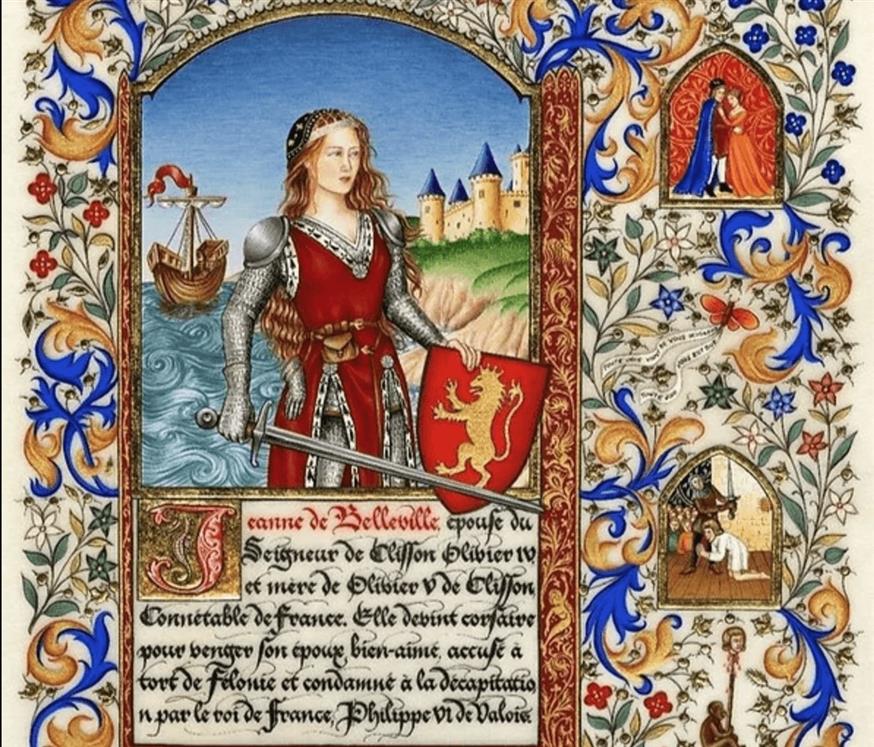 Jeanne de Belleville, épouse du
Seigneur de Clisson Olivier IV
et mère de Olivier V de Clisson
Connétable de France. Elle devint corsaire
pour venger son époux bien-aimé, accusé à
tort de Félonie et condamné à la décapitatio
n par le roi de France, Philippe VI de Valois.